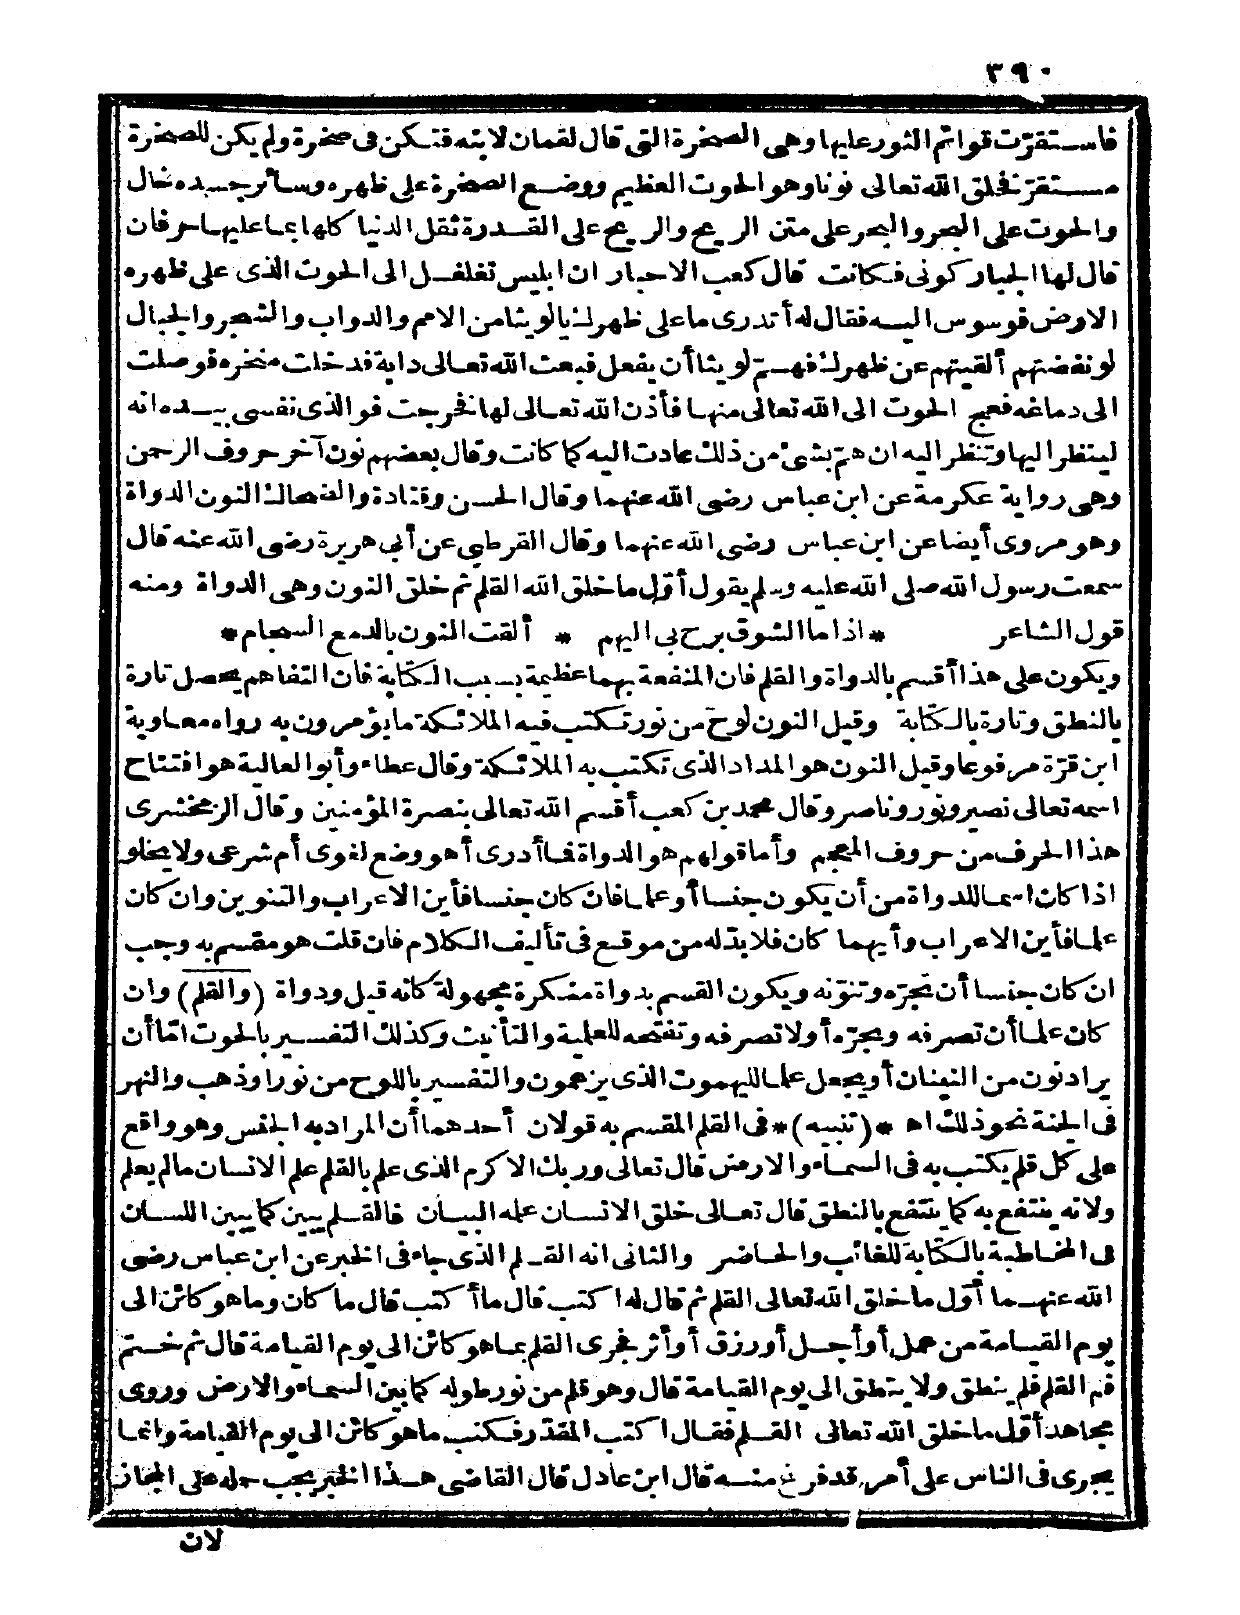 ٣٩٠
فاستقرّت قوائم الثور عليها وهى الصخرة التى قال لقمان لابنه فتكن فى صخرة ولم يكن للصخرة
مستقرّ فخلق الله تعالى نونا وهو الحوت العظيم ووضع الصخرة على ظهره وسائر جسده خال
والحوت على البحر والبحر على متن الريح والريح على القدرة ثقل الدنيا كلها بما عليها حرفان
قال لها الجبار كونى فكانت قال كعب الاحبار ان ابليس تغلغل الى الحوت الذى على ظهره
الارض فوسوس اليه فقال له أتدرى ما على ظهرك يا لويثا من الامم والدواب والشجر والجبال
لو نفضتهم ألقيتهم عن ظهرك فهمّ لويثا أن يفعل فبعث الله تعالى دابة فدخلت منخره فوصلت
الى دماغه فعج الحوت الى الله تعالى منها فأذن الله تعالى لها فخرجت فو الذى نفسى بيده انه
لينظر اليها وتنظر اليه ان همّ بشئ من ذلك عادت اليه كما كانت وقال بعضهم نون آخر حروف الرحمن
وهى رواية عكرمة عن ابن عباس رضى الله عنهما وقال الحسن وقتادة والضحاك النون الدواة
وهو مروى أيضا عن ابن عباس رضى الله عنهما وقال القرطبى عن أبى هريرة رضى الله عنه قال
سمعت رسول الله صلى الله عليه وسلم يقول أوّل ما خلق الله القلم ثم خلق النون وهى الدواة ومنه
قول الشاعر * اذا ما الشوق برح بى اليهم * ألقت النون بالدمع السجام *
ويكون على هذا أقسم بالدواة والقلم فان المنفعة بهما عظيمة بسبب الكتابة فان التفاهم يحصل تارة
بالنطق وتارة بالكتابة وقيل النون لوح من نور تكتب فيه الملائكة ما يؤمرون به رواه معاوية
ابن قرّة مرفوعا وقيل النون هو المداد الذى تكتب به الملائكة وقال عطاء وأبو العالية هو افتتاح
اسمه تعالى نصير ونور وناصر وقال محمد بن كعب أقسم الله تعالى بنصرة المؤمنين وقال الزمخشرى
هذا الحرف من حروف المعجم وأما قولهم هو الدواة فما أدرى أهو وضع لغوى أم شرعى ولا يخلو
اذا كان اسما للدواة من أن يكون جنسا أو علما فان كان جنسا فأين الاعراب والتنوين وان كان
علما فأين الاعراب وأيهما كان فلا بدّ له من موقع فى تأليف الكلام فان قلت هو مقسم به وجب
ان كان جنسا أن تجرّه وتنوّنه ويكون القسم بدواة منكرة مجهولة كانه قيل ودواة (والقلم) وان
كان علما أن تصرفه وبجرّه أو لا تصرفه وتفتحه للعلمية والتأنيث وكذلك التفسير بالحوت امّا أن
يراد نون من النينان أو يجعل علما لليهموت الذى يزعمون والتفسير باللوح من نور أو ذهب والنهر
فى الجنة نحو ذلك اه *(تنبيه)* فى القلم المقسم به قولان أحدهما أن المراد به الجنس وهو واقع
على كل قلم يكتب به فى السماء والارض قال تعالى وربك الاكرم الذى علم بالقلم علم الانسان ما لم يعلم
ولانه ينتفع به كما ينتفع بالنطق قال تعالى خلق الانسان علمه البيان فالقلم يبين كما يبين اللسان
فى المخاطبة بالكتابة للغائب والحاضر والثانى انه القلم الذى جاء فى الخبر عن ابن عباس رضى
الله عنهما أوّل ما خلق الله تعالى القلم ثم قال له اكتب قال ما أكتب قال ما كان وما هو كائن الى
يوم القيامة من عمل أو أجل أو رزق أو أثر فجرى القلم بما هو كائن الى يوم القيامة قال ثم ختم
فم القلم فلم ينطق ولا ينطق الى يوم القيامة قال وهو قلم من نور طوله كما بين السماء والارض وروى
مجاهد أوّل ما خلق الله تعالى القلم فقال اكتب المقدّر فكتب ما هو كائن الى يوم القيامة وانما
يجرى فى الناس على أمر قد فرغ منه قال ابن عادل قال القاضى هذا الخبر يجب حمله على المجاز
لان